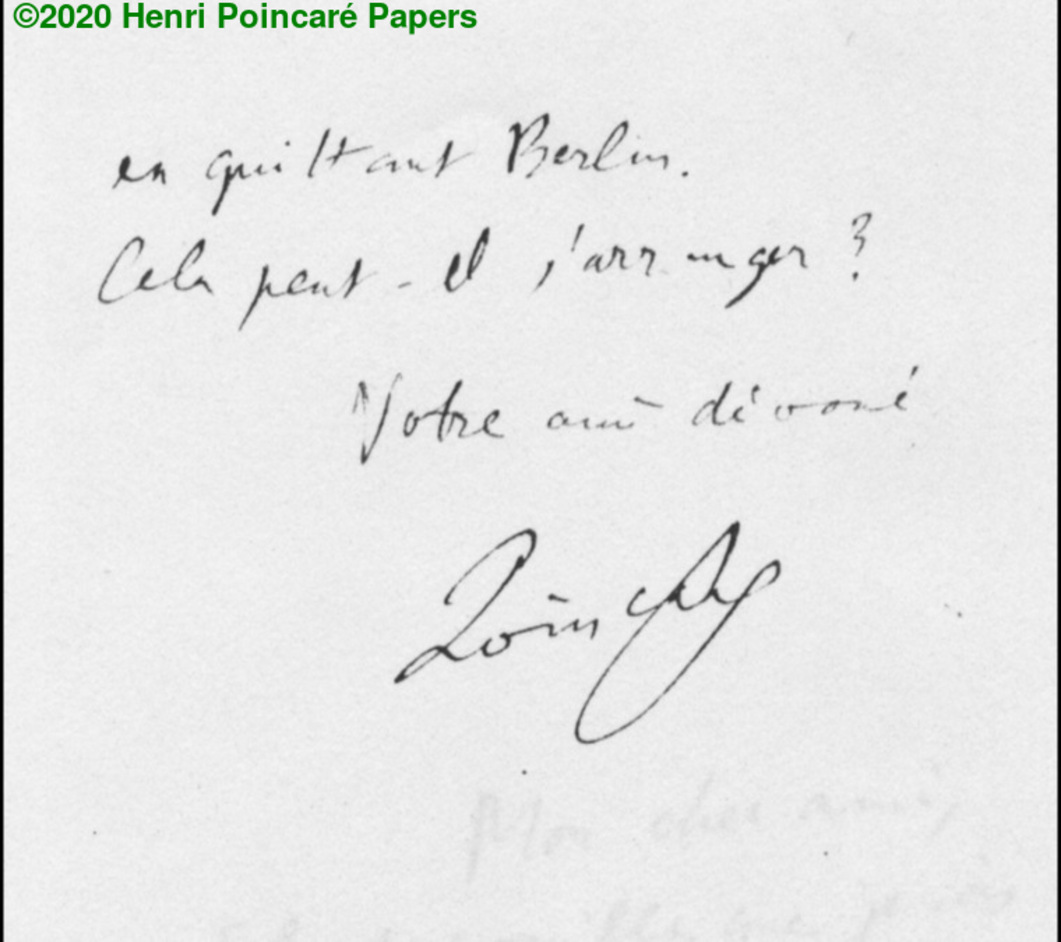 ©2020 Henri Poincaré Papers
en quittant Berlin.
Cela peut-il s'arranger ?
Votre ami dévoué
Poincaré
Mon cher ami,